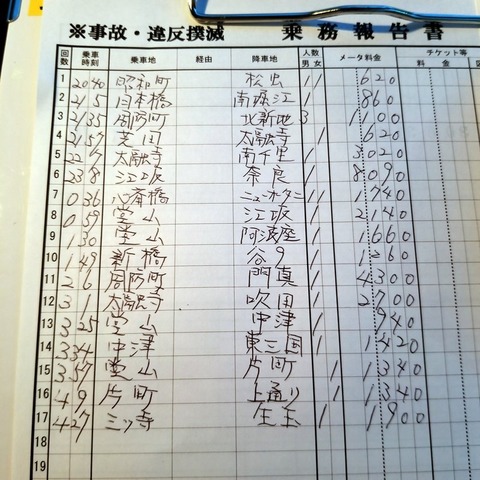 ※事故・違反撲滅 乗務報告書
回数 乗車時刻 乗車地 経由 降車地 人数 男 女 メータ料金 チケット等 料金
1 2040 昭和町 松虫 1 1 620
2 215 日本橋 南堀江 1 860
3 2135 周防町 北新地 3 1100
4 2157 芝田 太融寺 1 620
5 227 太融寺 南千里 1 3020
6 238 江坂 奈良 1 8090
7 036 心斎橋 ニューオータニ 1 1 1740
8 059 堂山 江坂 1 2140
9 130 堂山 阿波座 1 1660
10 149 新橋 谷9 1 1260
11 26 周防町 門真 1 4300
12 31 太融寺 吹田 1 2700
13 325 堂山 中津 1 940
14 334 中津 東三国 1 1420
15 357 堂山 片町 1 1340
16 49 片町 上通り 1 1340
17 427 三ッ寺 生玉 1 1900
18
19